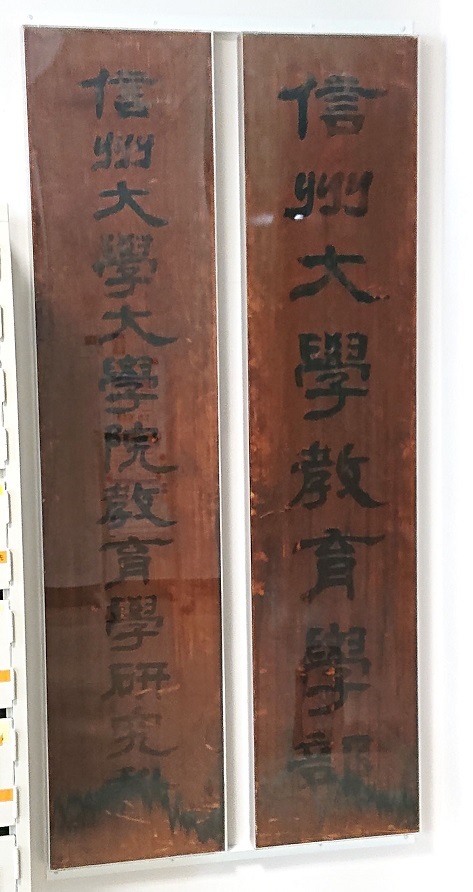 信州大學教育學部
信州大學大學院教育學研究科